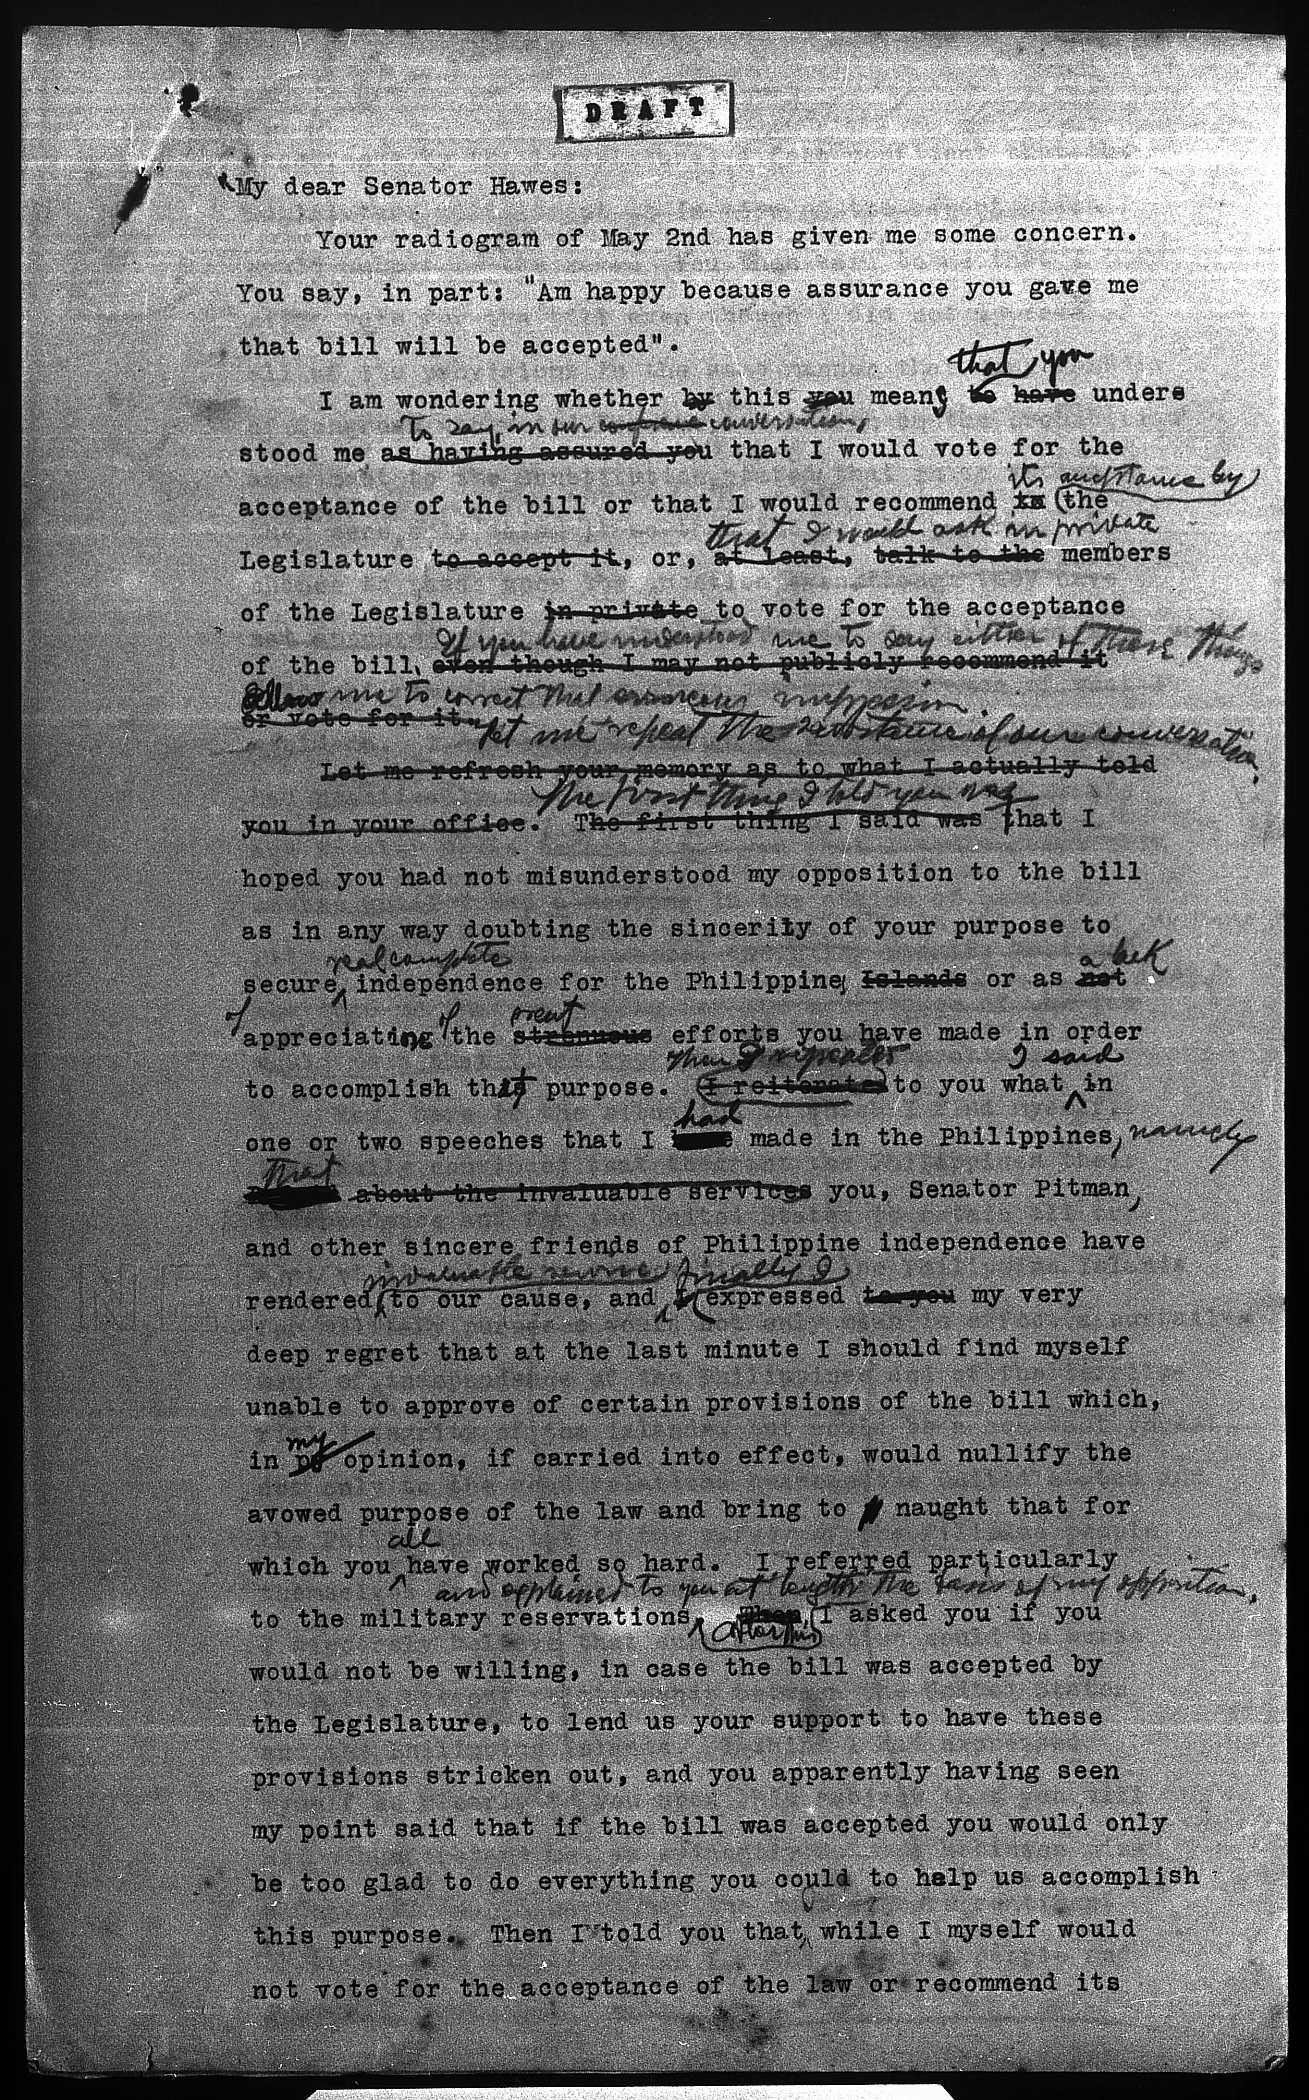 DRAFT
My dear Senator Hawes:
Your radiogram of May 2nd has given me some concern.
You say, in part: "Am happy because assurance you gave me
that bill will be accepted".
that you
I am wondering whether by this you mean to have under-
to say, in our conversation,
stood me as having assured you that I would vote for the
its acceptance by
acceptance of the bill or that I would recommend the
that I would ask in private
Legislature to accept it, or, at least, talk to the members
of the Legislature in private to vote for the acceptance
If you have understood me to say either of these things
of the bill, even though I may not publicly recommend it
allow me to correct that erroneous impression.
or vote for it.
Let me repeat the substance of our conversation.
Let me refresh your memory as to what I actually told
The first thing I told you was
you in your office. The first thing I said was that I
hoped you had not misunderstood my opposition to the bill
as in any way doubting the sincerity of your purpose to
real complete a lack
secure independence for the Philippine Islands or as not
of of great
appreciating the strenuous efforts you have made in order
then I repeated I said
to accomplish this purpose. I reiterated to you what in
had
one or two speeches that I made in the Philippines, namely
that
about the invaluable services you, Senator Pitman,
and other sincere friends of Philippine independence have
invaluable service finally I
rendered to our cause, and I expressed to you my very
deep regret that at the last minute I should find myself
unable to approve of certain provisions of the bill which,
my
in opinion, if carried into effect, would nullify the
avowed purpose of the law and bring to naught that for
all
which you have worked so hard. I referred particularly
and explained to you at length the basis of my opposition.
to the military reservations. Then, I asked you if you
After this
would not be willing, in case the bill was accepted by
the Legislature, to lend us your support to have these
provisions stricken out, and you apparently having seen
my point said that if the bill was accepted you would only
be too glad to do everything you could to help us accomplish
this purpose. Then I told you that, while I myself would
not vote for the acceptance of the law or recommend its